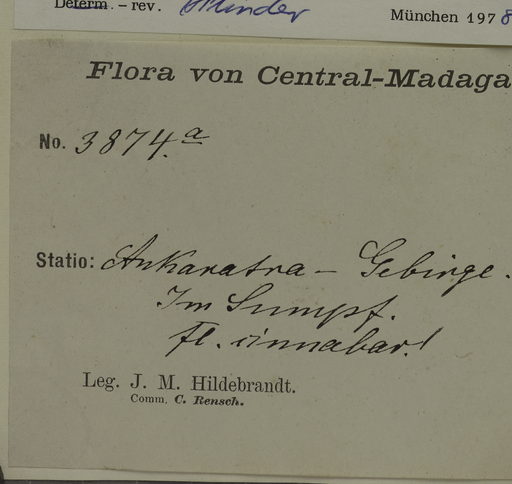 Determ. – rev. München 1978
Flora von Central-Madaga
No. 3874.a
Statio: Ankaratra – Gebirge.
Im Sumpf.
Fl. cinnabar!
Leg. J. M. Hildebrandt.
Comm. C. Rensch.